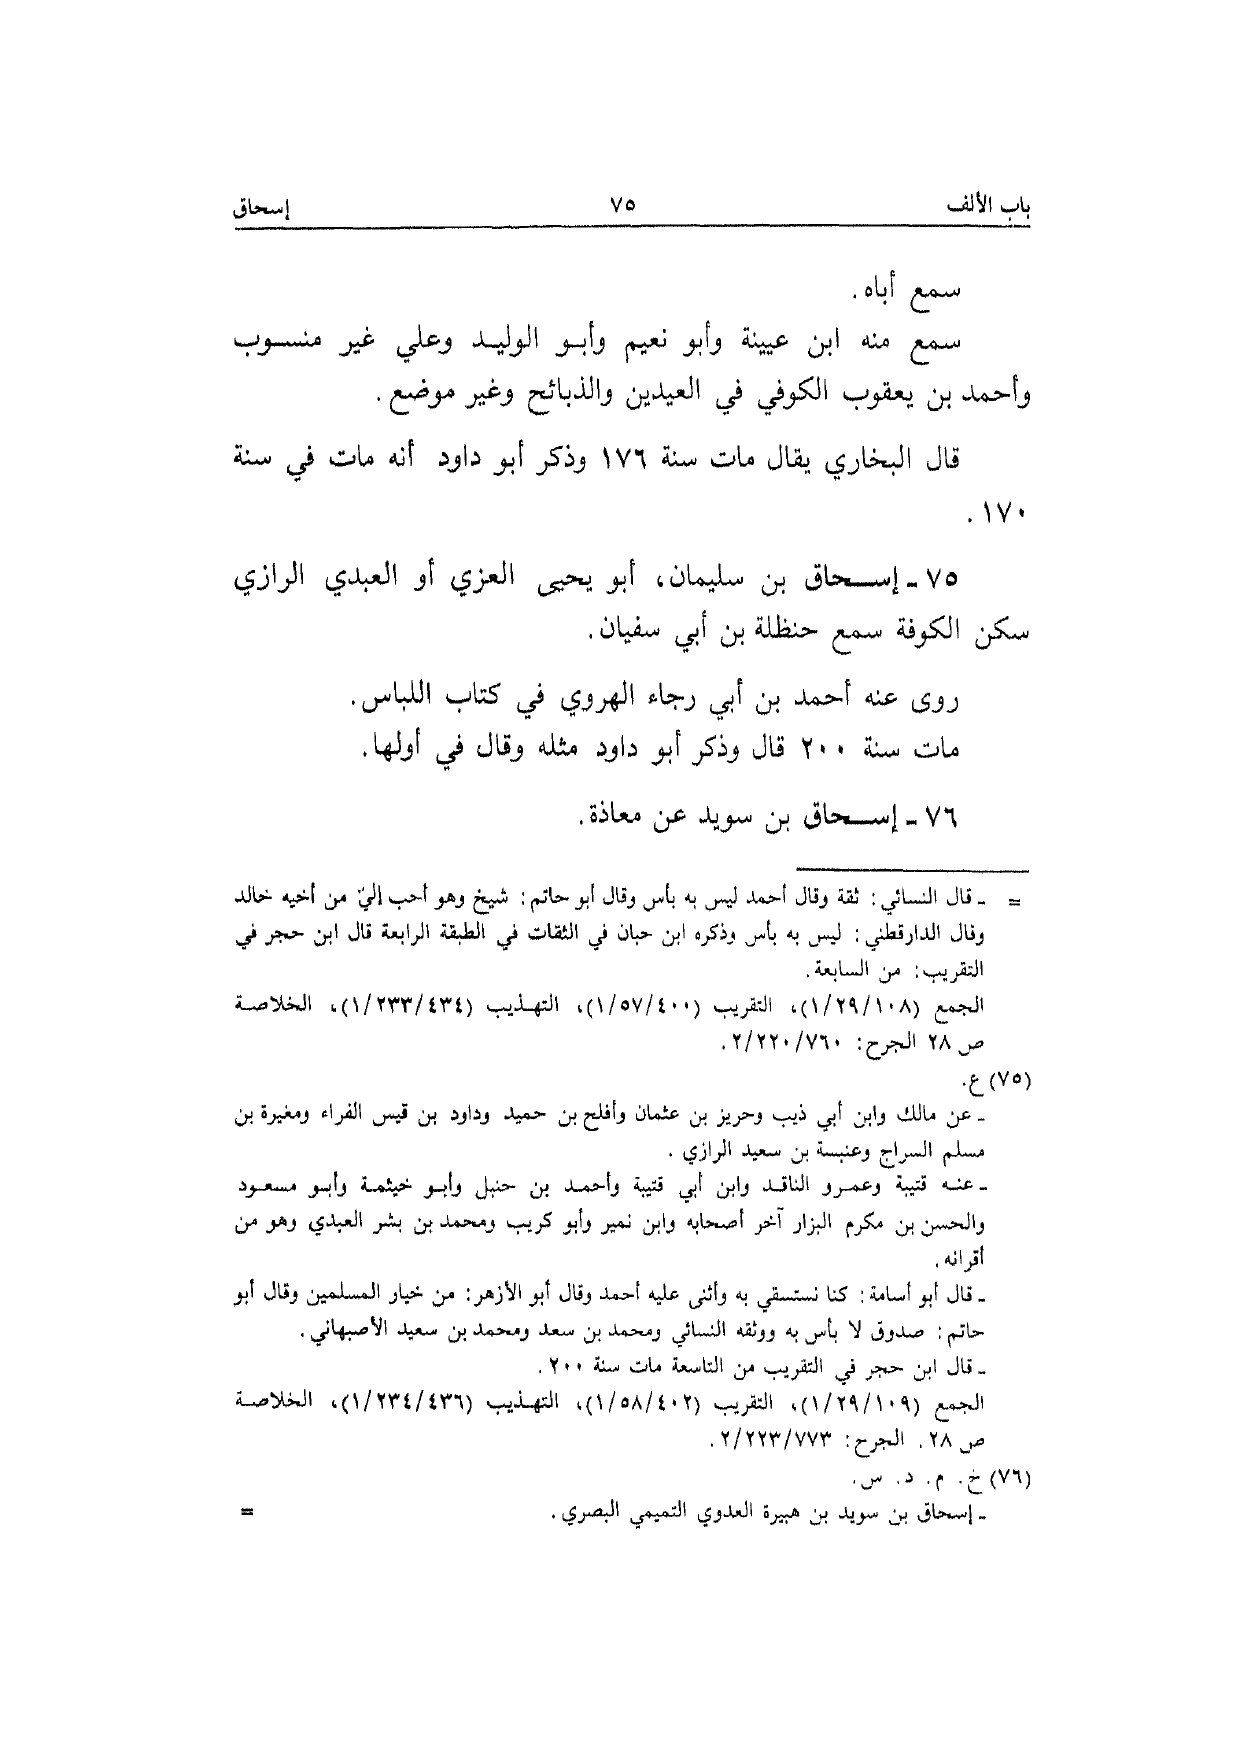 باب الألف ٧٥ إسحاق
سمع أباه.
سمع منه ابن عيينة وأبو نعيم وأبو الوليد وعلي غير منسوب
وأحمد بن يعقوب الكوفي في العيدين والذبائح وغير موضع.
قال البخاري يقال مات سنة ١٧٦ وذكر أبو داود أنه مات في سنة
١٧٠.
٧٥ - إسحاق بن سليمان، أبو يحيى العزي أو العبدي الرازي
سكن الكوفة سمع حنظلة بن أبي سفيان.
روى عنه أحمد بن أبي رجاء الهروي في كتاب اللباس.
مات سنة ٢٠٠ قال وذكر أبو داود مثله وقال في أولها.
٧٦ - إسحاق بن سويد عن معاذة.
= - قال النسائي: ثقة وقال أحمد ليس به بأس وقال أبو حاتم: شيخ وهو أحب إليّ من أخيه خالد
وقال الدارقطني: ليس به بأس وذكره ابن حبان في الثقات في الطبقة الرابعة قال ابن حجر في
التقريب: من السابعة.
الجمع (١/٢٩/١٠٨)، التقريب (١/٥٧/٤٠٠)، التهذيب (١/٢٣٣/٤٣٤)، الخلاصة
ص ٢٨ الجرح: ٢/٢٢٠/٧٦٠.
(٧٥) ع.
- عن مالك وابن أبي ذيب وحريز بن عثمان وأفلح بن حميد وداود بن قيس الفراء ومغيرة بن
مسلم السراج وعنبسة بن سعيد الرازي.
- عنه قتيبة وعمرو الناقد وابن أبي قتيبة وأحمد بن حنبل وأبو خيثمة وأبو مسعود
والحسن بن مكرم البزار آخر أصحابه وابن نمير وأبو كريب ومحمد بن بشر العبدي وهو من
أقرانه.
- قال أبو أسامة: كنا نستسقي به وأثنى عليه أحمد وقال أبو الأزهر: من خيار المسلمين وقال أبو
حاتم: صدوق لا بأس به ووثقه النسائي ومحمد بن سعد ومحمد بن سعيد الأصبهاني.
- قال ابن حجر في التقريب من التاسعة مات سنة ٢٠٠.
الجمع (١/٢٩/١٠٩)، التقريب (١/٥٨/٤٠٢)، التهذيب (١/٢٣٤/٤٣٦)، الخلاصة
ص ٢٨. الجرح: ٢/٢٢٣/٧٧٣.
(٧٦) خ. م. د. س.
- إسحاق بن سويد بن هبيرة العدوي التميمي البصري. =